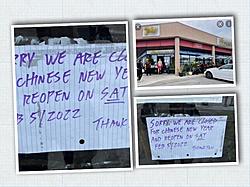 RRY WE ARE CLO
CHINESE NEW YEA
REOPEN ON SAT
B 5/2022
THANK
SORRY WE ARE CLOSED
FOR CHINESE NEW YEAR
AND REOPEN ON SAT
FEB 5/2022
THANK YOU